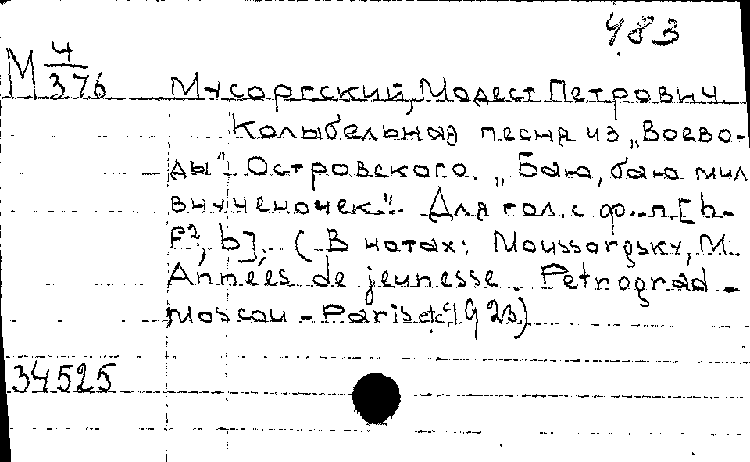 483
М 4/376
Мусоргский, Модест Петрович.
Колыбельная песня из „Воево-
ды" Островского. „Баю, баю мил
внученочек". Для гол. с ф.-п. [b-
f², b]. (В нотах: Moussorgsky, M.
Années de jeunesse. Petrograd -
Moscou - Paris etc 1923)
34525